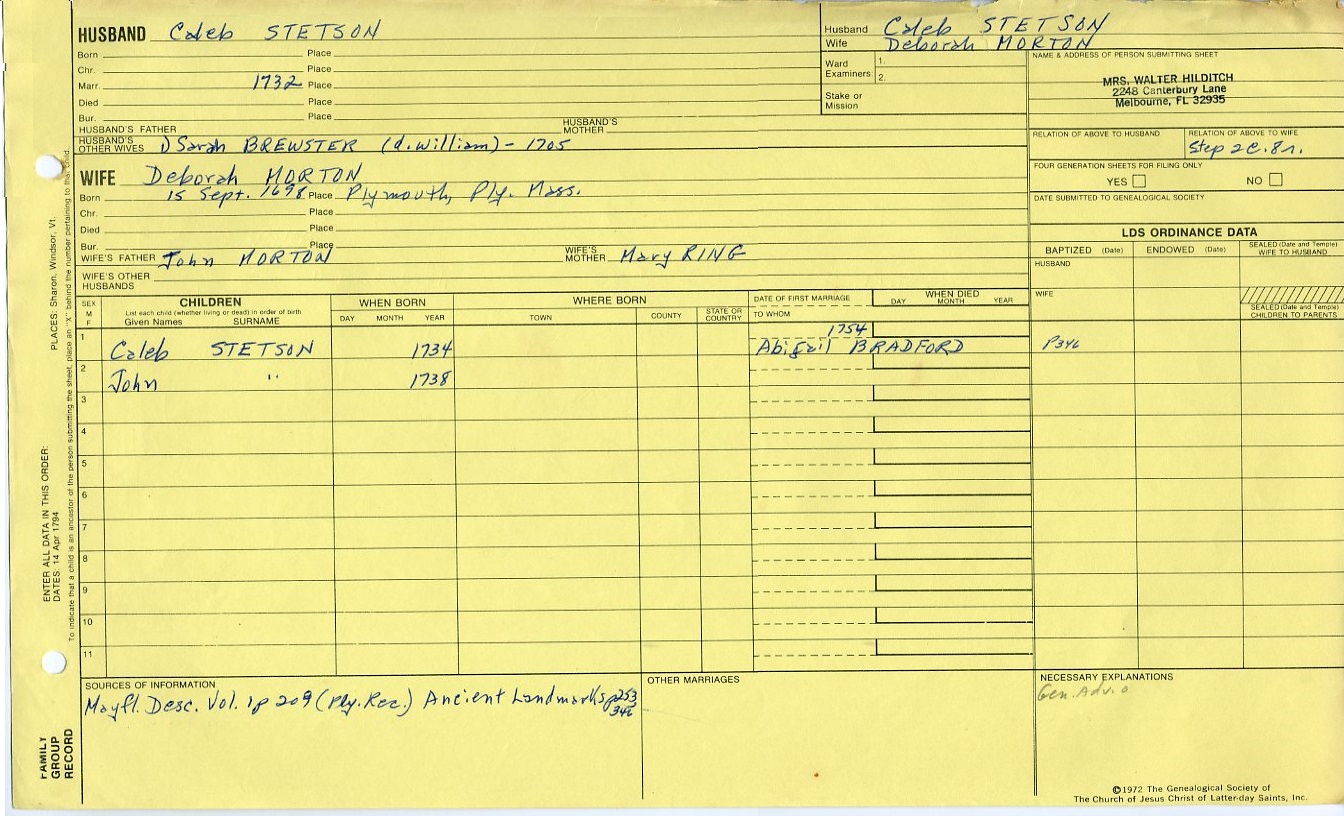 HUSBAND Caleb STETSON
Born Place
Chr. Place
Marr. 1732 Place
Died Place
Bur. Place
HUSBAND'S FATHER HUSBAND'S MOTHER
HUSBAND'S OTHER WIVES 1) Sarah BREWSTER (d. William) - 1705
WIFE Deborah MORTON
Born 15 Sept. 1698 Place Plymouth, Ply. Mass.
Chr. Place
Died Place
Bur. Place
WIFE'S FATHER John MORTON WIFE'S MOTHER Mary RING
WIFE'S OTHER HUSBANDS
Husband Caleb STETSON
Wife Deborah MORTON
Ward Examiners: 1.
2.
Stake or Mission
NAME & ADDRESS OF PERSON SUBMITTING SHEET
MRS. WALTER HILDITCH
2248 Canterbury Lane
Melbourne, FL 32935
RELATION OF ABOVE TO HUSBAND RELATION OF ABOVE TO WIFE
Step 2C.8r.
FOUR GENERATION SHEETS FOR FILING ONLY
YES NO
DATE SUBMITTED TO GENEALOGICAL SOCIETY
LDS ORDINANCE DATA
BAPTIZED (Date) ENDOWED (Date) SEALED (Date and Temple) WIFE TO HUSBAND
HUSBAND
WIFE
SEALED (Date and Temple) CHILDREN TO PARENTS
SEX M F
CHILDREN
List each child (whether living or dead) in order of birth
Given Names SURNAME
WHEN BORN
DAY MONTH YEAR
WHERE BORN
TOWN COUNTY STATE OR COUNTRY
DATE OF FIRST MARRIAGE
TO WHOM
WHEN DIED
DAY MONTH YEAR
1 Caleb STETSON 1734 1754 Abigail BRADFORD P346
2 John " 1738
3
4
5
6
7
8
9
10
11
SOURCES OF INFORMATION
Mayfl. Desc. Vol. 1p 209 (Ply. Rec.) Ancient Landmarks p253
346
OTHER MARRIAGES
NECESSARY EXPLANATIONS
Gen. Adv.
©1972 The Genealogical Society of
The Church of Jesus Christ of Latter-day Saints, Inc.
ENTER ALL DATA IN THIS ORDER:
DATES: 14 Apr 1794 PLACES: Sharon, Windsor, Vt.
To indicate that a child is an ancestor of the person submitting the sheet, place an "X" behind the number pertaining to that child.
FAMILY
GROUP
RECORD